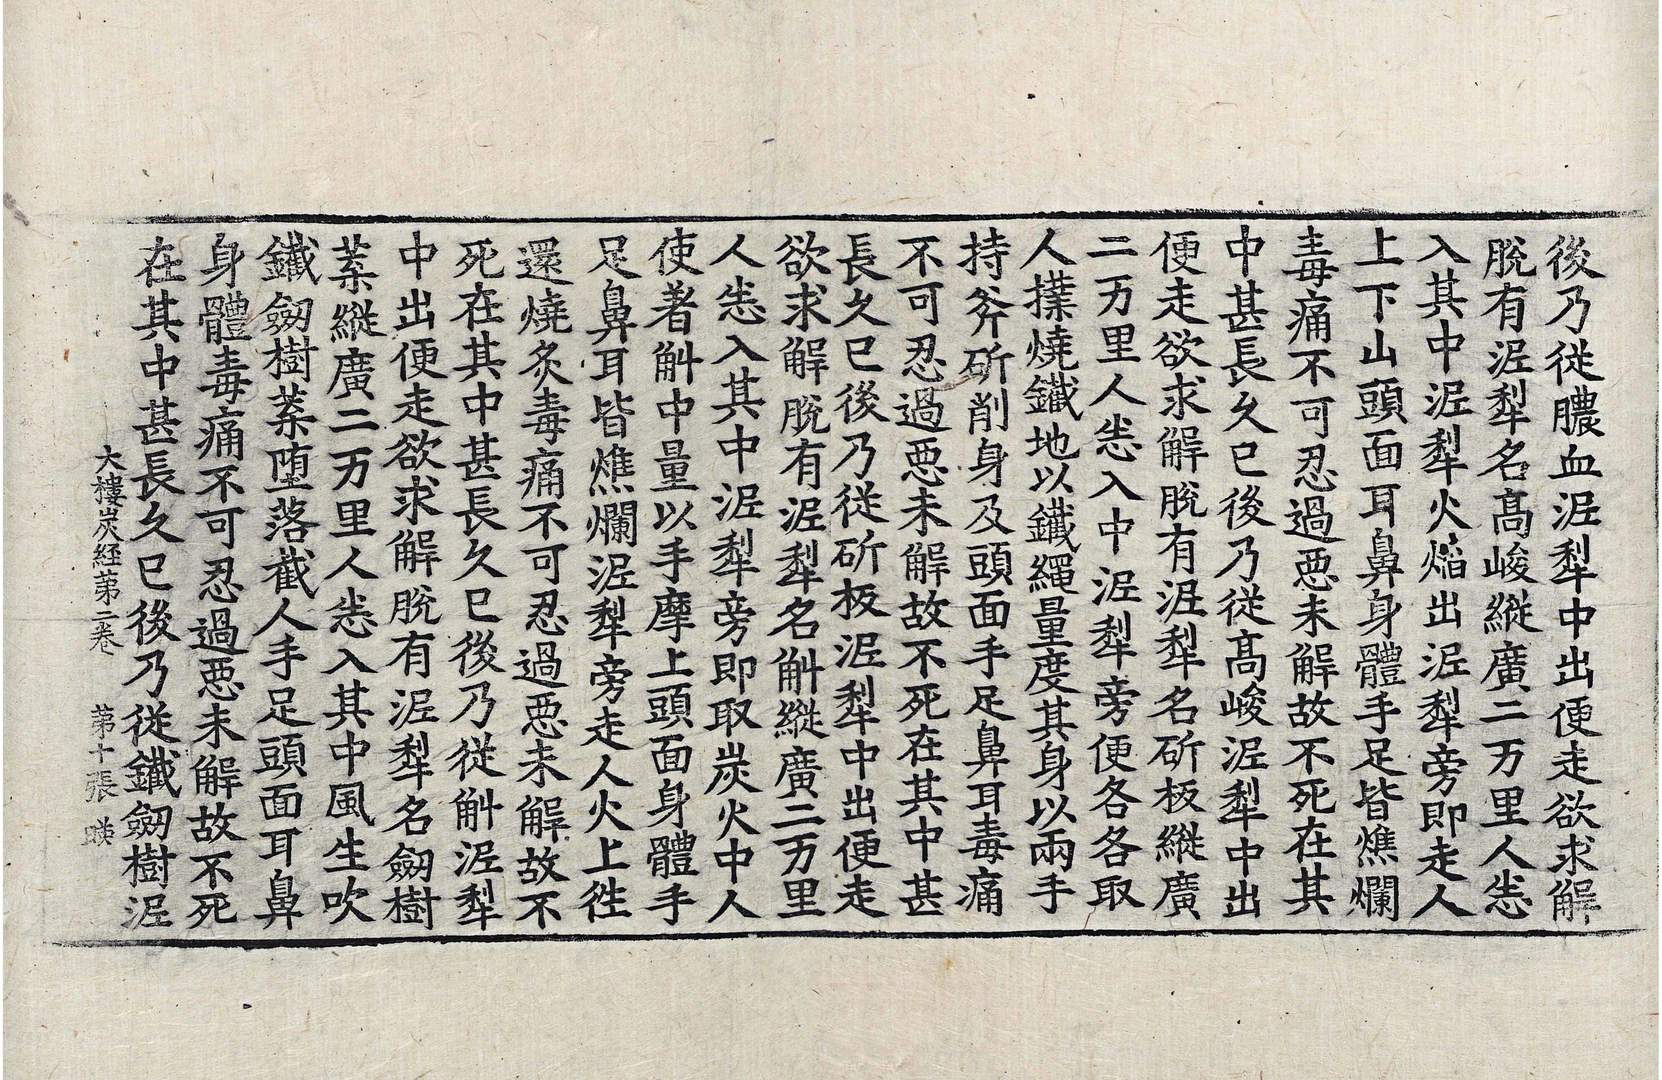 後乃從膿血泥犁中出便走欲求解
脫有泥犁名髙峻縱廣二万里人㤪
入其中泥犁火焰出泥犁旁即走人
上下山頭面耳鼻身體手足皆燋爛
毒痛不可忍過惡未解故不死在其
中甚長久已後乃從髙峻泥犁中出
便走欲求解脫有泥犁名斫板縱廣
二万里人㤪入中泥犁旁便各各取
人撲燒鐵地以鐵繩量度其身以兩手
持斧斫削身及頭面手足鼻耳毒痛
不可忍過惡未解故不死在其中甚
長久已後乃從斫板泥犁中出便走
欲求解脫有泥犁名斛縱廣二万里
人㤪入其中泥犁旁即取炭火中人
使著斛中量以手摩上頭面身體手
足鼻耳皆燋爛泥犁旁走人火上徃
還燒炙毒痛不可忍過惡未解故不
死在其中甚長久已後乃從斛泥犁
中出便走欲求解脫有泥犁名劒樹
葉縱廣二万里人㤪入其中風生吹
鐵劒樹葉堕落截人手足頭面耳鼻
身體毒痛不可忍過惡未解故不死
在其中甚長久已後乃從鐵劒樹泥
大樓炭経第二卷 第十張